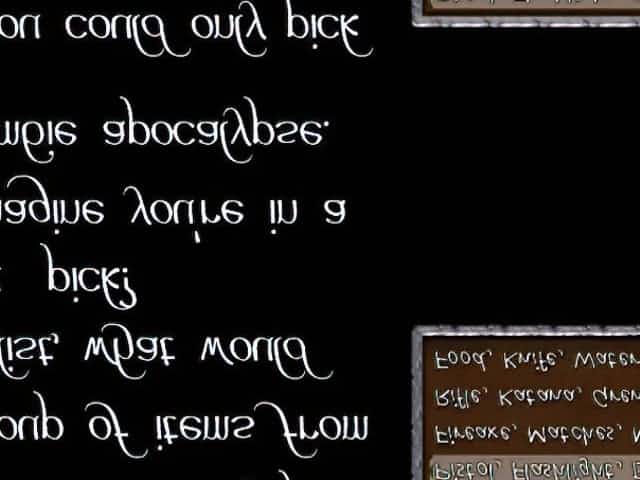 oup of items from
list, what would
pick?
agine you're in a
mbie apocalypse.
ou could only pick
Pistol, Flashlight,
Fireaxe, Matches,
Rifle, Katana, Gren
Food, Knife, Water